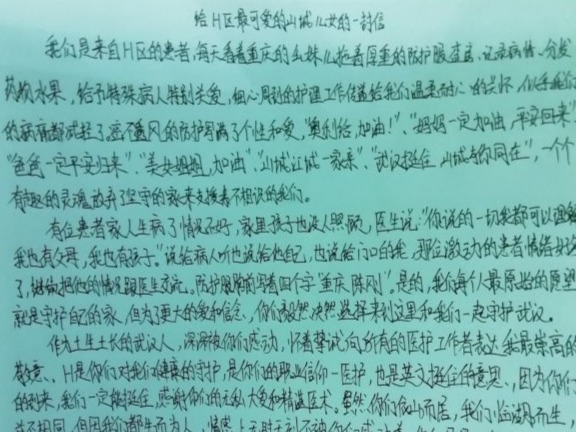 给H区最可爱的山城儿女的一封信
我们是来自H区的患者,每天看着重庆的幺妹儿拖着厚重的防护服查房、记录病情、分发
药物水果,给予特殊病人特别关爱,细心周到的护理工作传递给我们温柔耐心的关怀,似乎我们
的病痛都减轻了,密不透风的防护写满了个性和爱,“奥利给,加油!”、“妈妈一定加油,平安回来”
“爸爸一定平安归来”、“美女姐姐,加油”、“山城江城一家亲”、“武汉挺住,山城与你同在”,一个个
有趣的灵魂放弃了坚守的家来支援着不相识的我们。
有位患者家人生病了情况不好,家里孩子也没人照顾,医生说:“你说的一切我都可以理解
我也有父母,我也有孩子。”说给病人听也说给他自己,也说给门口的我,那位激动的患者情绪好些
了,继续把他的情况跟医生交流。防护服胸前写着四个字“重庆 陈刚”,是的,我们每个人最原始的愿望
就是守护自己的家,但为了更大的爱和信念,你们毅然决然选择来到这里和我们一起守护武汉。
作为土生土长的武汉人,深深被你们感动,怀着挚诚向所有的医护工作者表达我最崇高的
敬意、H是你们对我们健康的守护,是你们的职业信仰—医护,也是英文挺住的意思、因为你们
的到来,我们一定能挺住,感谢你们的无私大爱和精湛医术。虽然你们依山而居,我们临湖而生,
不相同,但因我们都生而为人,情感上无时无刻不被你们